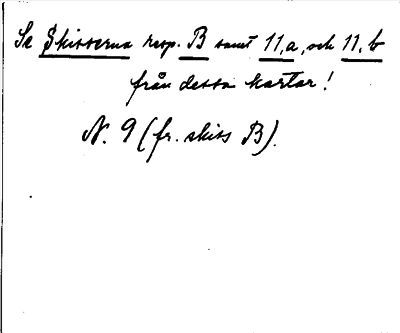 Se Skisserna resp. B samt 11,a, och 11, b
från dessa kartor!
N. 9 (fr. skiss B).